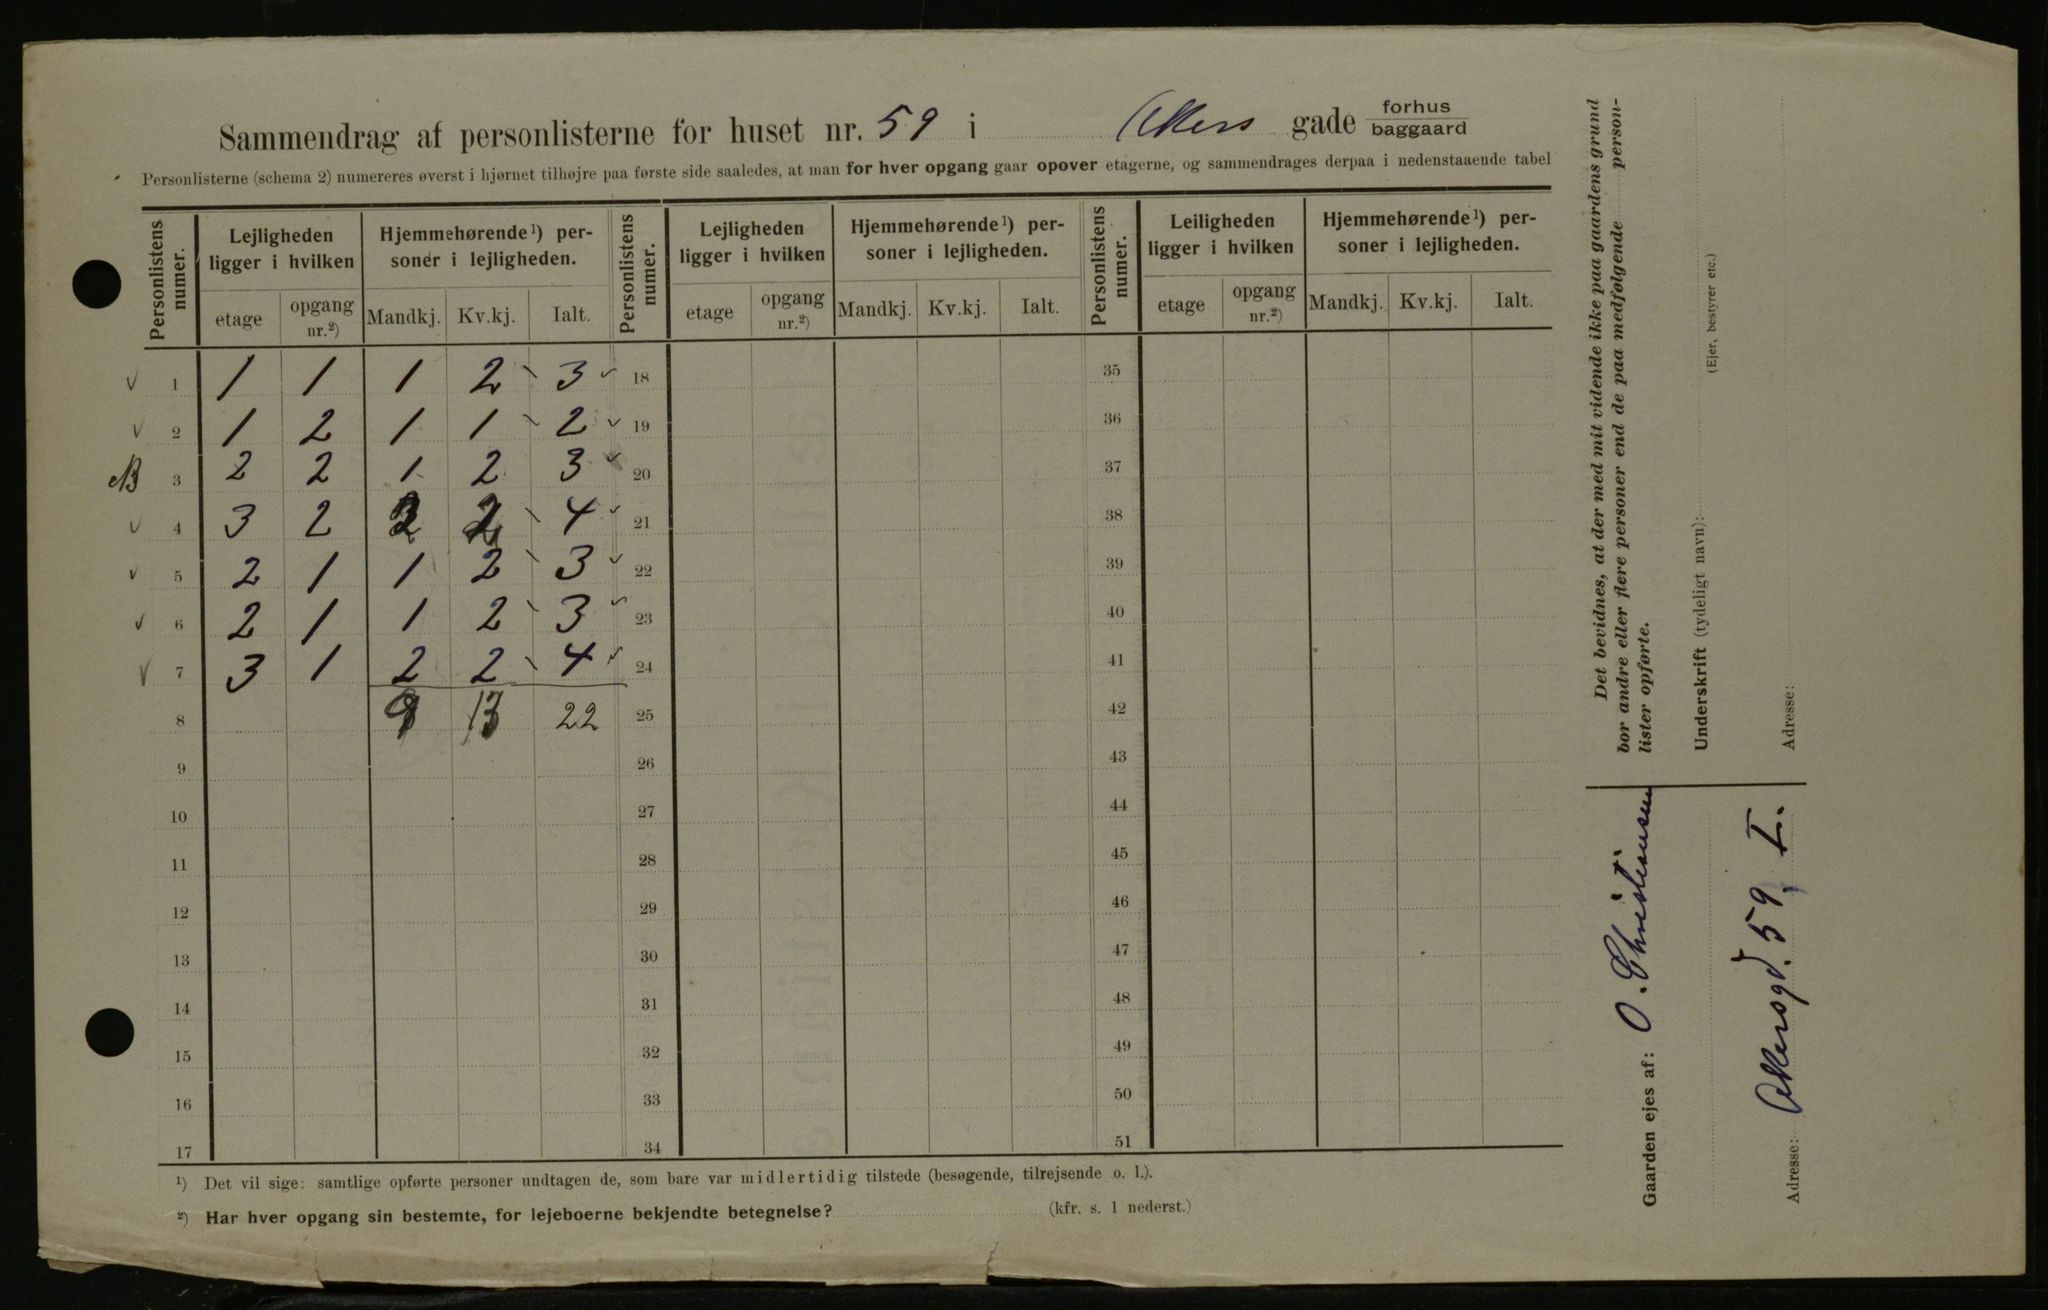 Sammendrag af personlisterne for huset nr. 59 i Akers gade forhus baggaard
Personlisterne (schema 2) numereres øverst i hjørnet tilhøjre paa første side saaledes, at man for hver opgang gaar opover etagerne, og sammendrages derpaa i nedenstaaende tabel
Personlistens numer. Lejligheden ligger i hvilken Hjemmehørende¹) personer i lejligheden. Personlistens numer. Lejligheden ligger i hvilken Hjemmehørende¹) personer i lejligheden. Personlistens numer. Leiligheden ligger i hvilken Hjemmehørende¹) personer i lejligheden.
etage opgang nr.²) Mandkj. Kv.kj. Ialt. etage opgang nr.²) Mandkj. Kv.kj. Ialt. etage opgang nr.²) Mandkj. Kv.kj. Ialt.
✓ 1 1 1 1 2 - 3 ✓ 18 35
✓ 2 1 2 1 1 - 2 ✓ 19 36
NB 3 2 2 1 2 3 ✓ 20 37
✓ 4 3 2 2 2 - 4 ✓ 21 38
✓ 5 2 1 1 2 - 3 ✓ 22 39
✓ 6 2 1 1 2 - 3 ✓ 23 40
✓ 7 3 1 2 2 - 4 ✓ 24 41
8 9 13 22 25 42
9 26 43
10 27 44
11 28 45
12 29 46
13 30 47
14 31 48
15 32 49
16 33 50
17 34 51
¹) Det vil sige: samtlige opførte personer undtagen de, som bare var midlertidig tilstede (besøgende, tilrejsende o. l.).
²) Har hver opgang sin bestemte, for lejeboerne bekjendte betegnelse? (kfr. s. 1 nederst.)
Det bevidnes, at der med mit vidende ikke paa gaardens grund
bor andre eller flere personer end de paa medfølgende person-
lister opførte.
Underskrift (tydeligt navn):
(Ejer, bestyrer etc.)
Adresse:
Gaarden ejes af: O. Christensen
Adresse: Akersgd. 59, I.